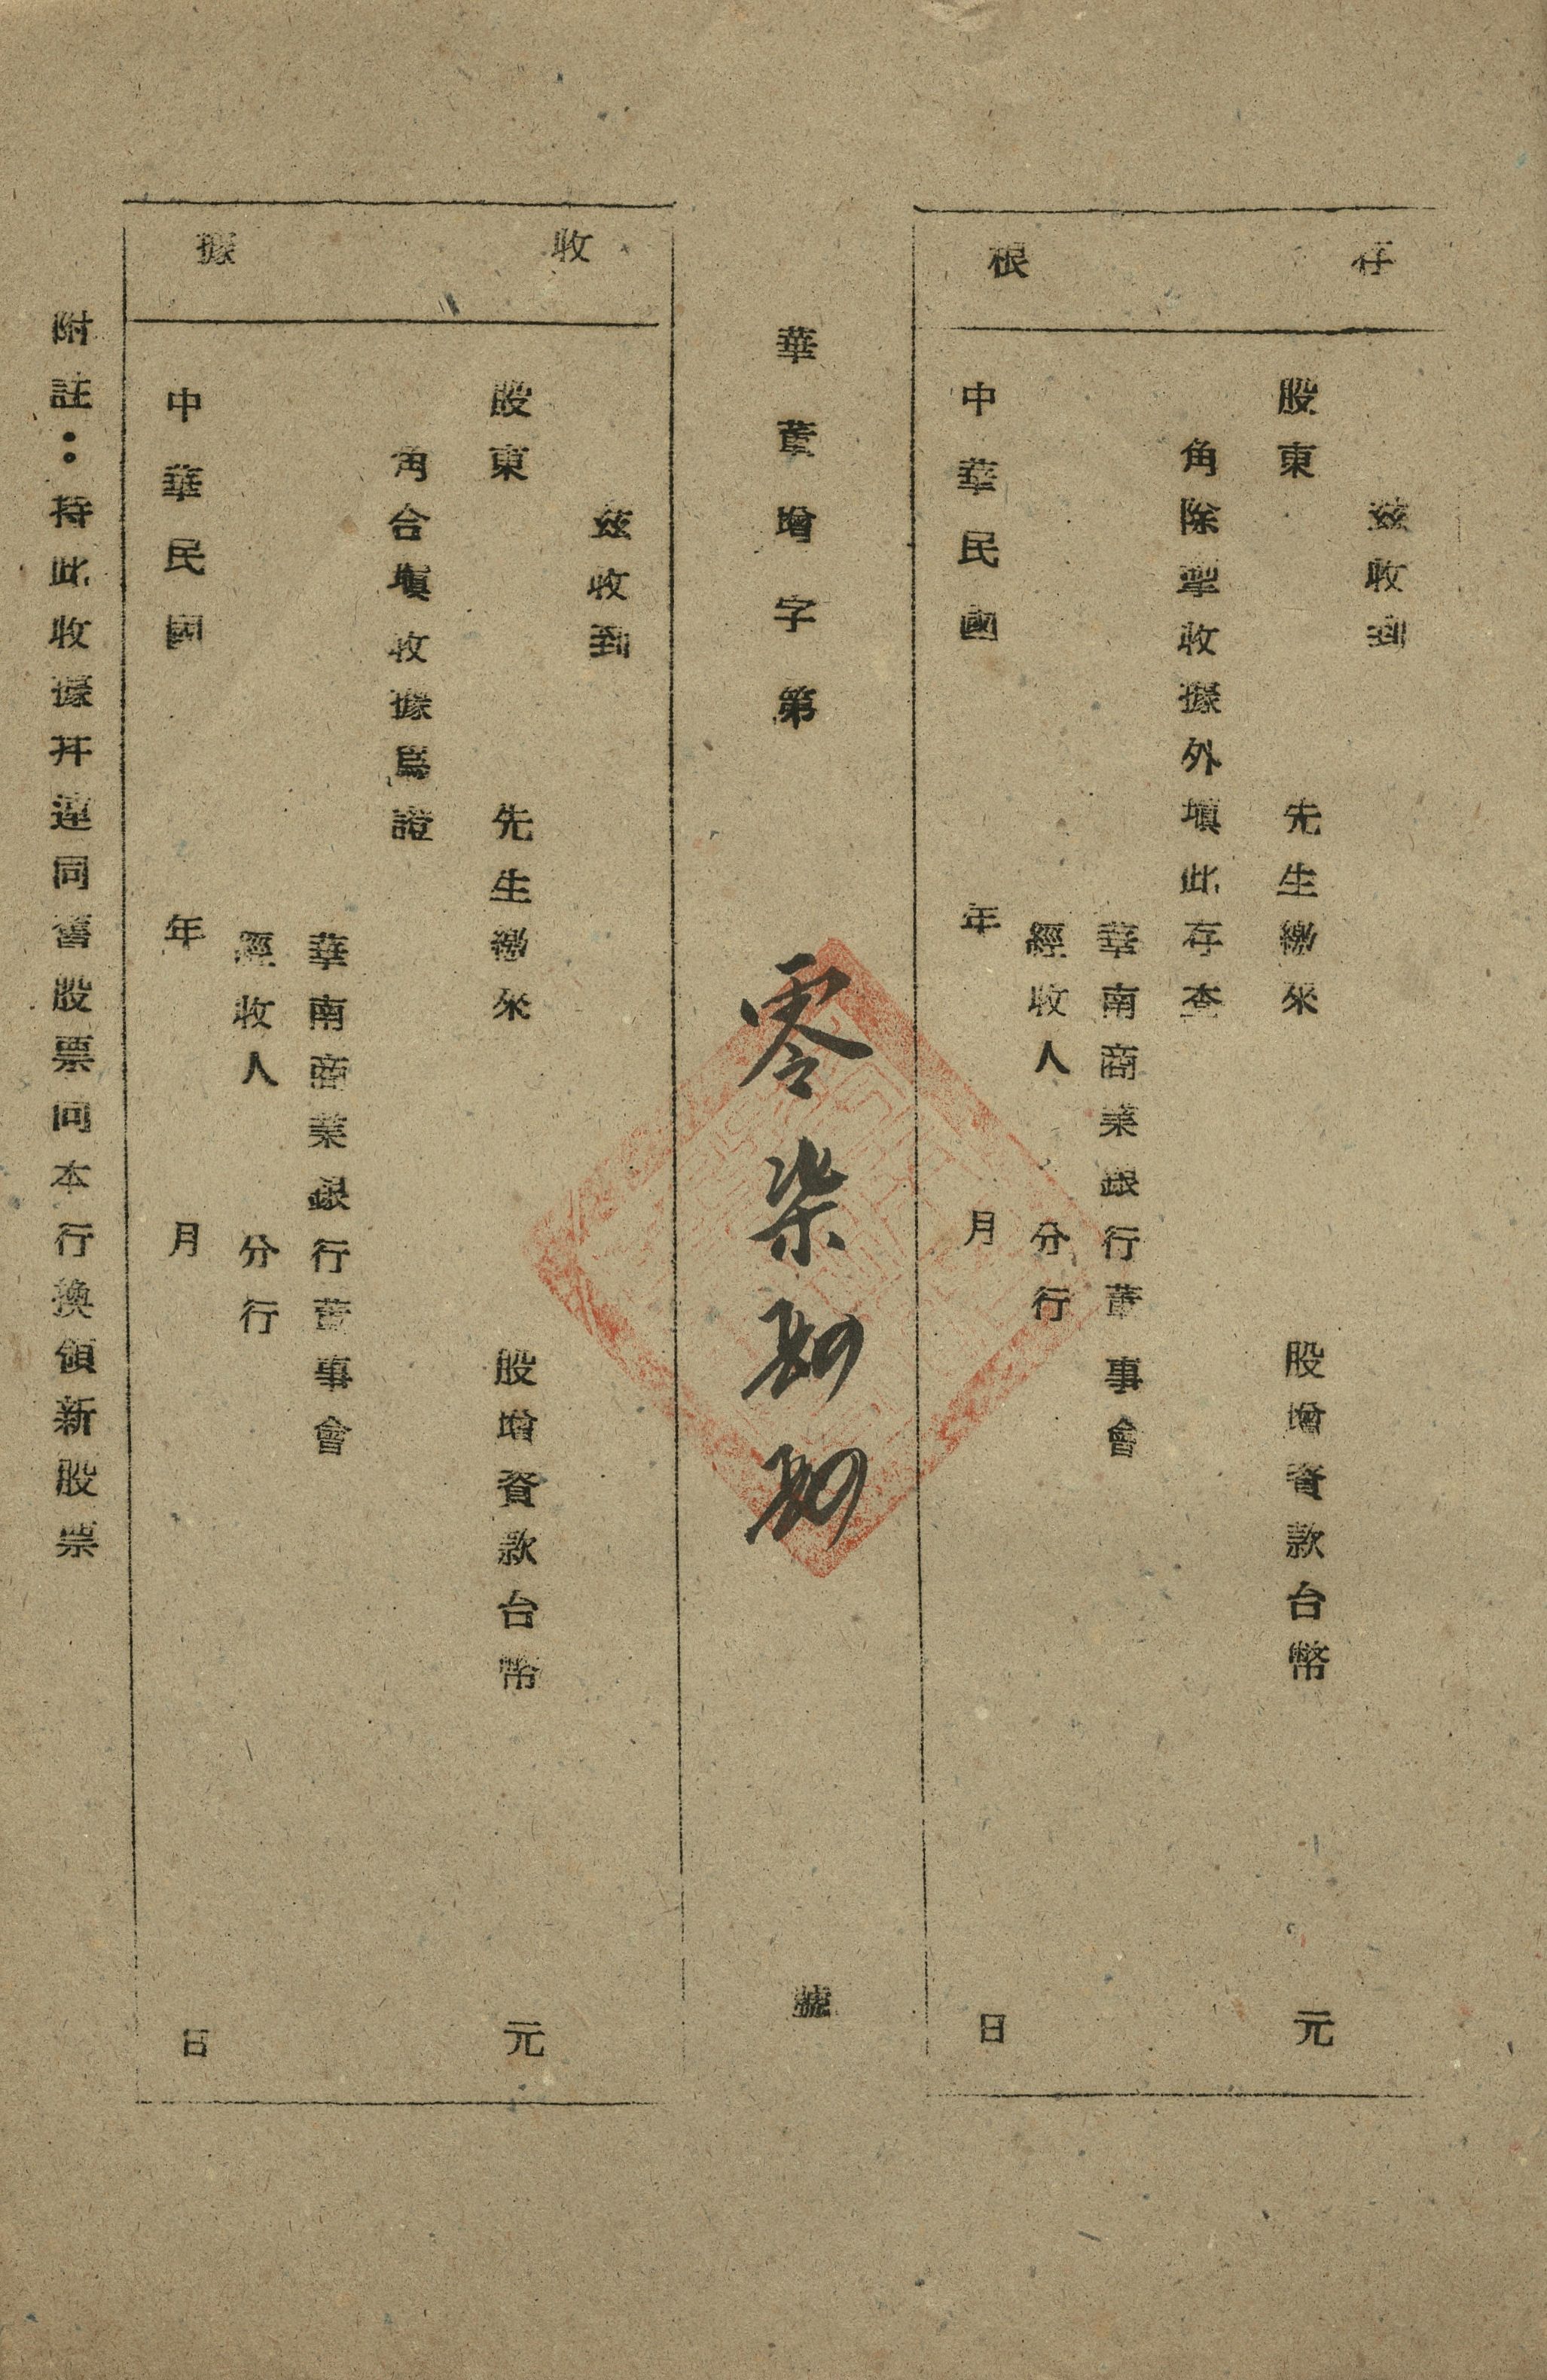 存根
茲收到
股東 先生繳來 股增資款台幣 元
角除掣收據外塡此存查
華南商業銀行董事會
經收人 分行
中華民國 年 月 日
華董增字第 零柒 號
收據
茲收到
股東 先生繳來 股增資款台幣 元
角合塡收據爲證
華南商業銀行董事會
經收人 分行
中華民國 年 月 日
附註：持此收據幷連同舊股票向本行換領新股票